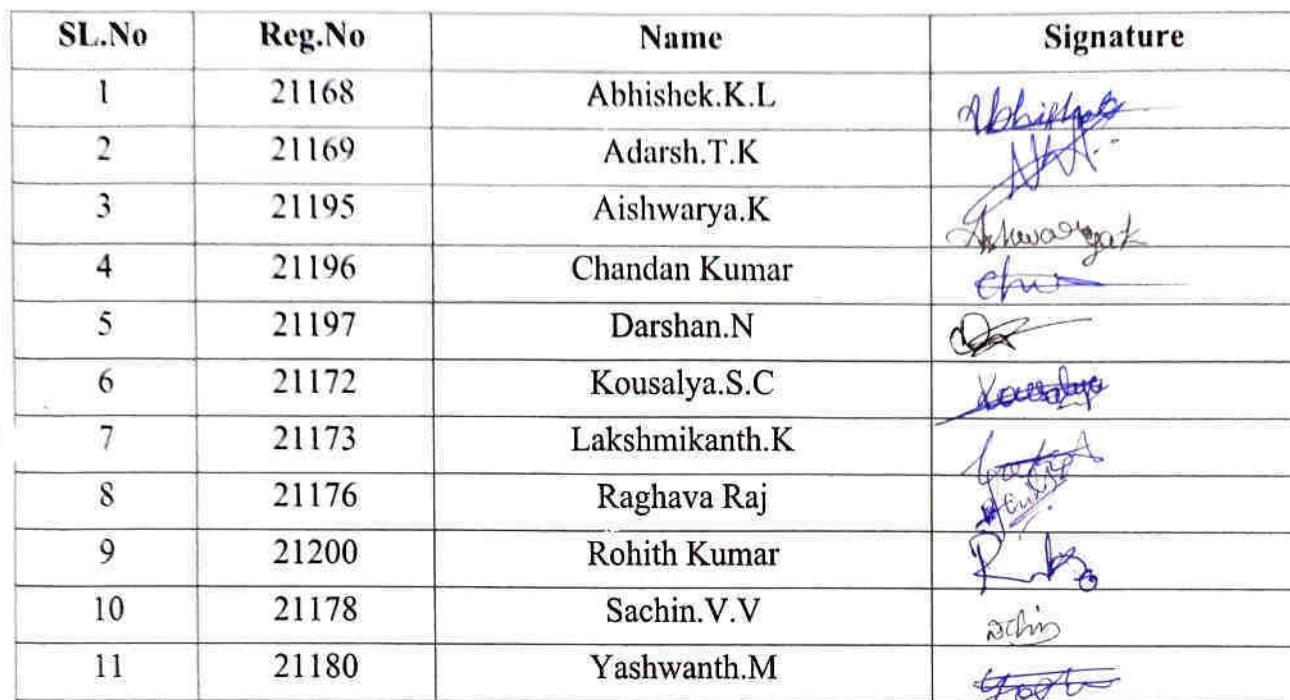 SL.No Reg.No Name Signature
1 21168 Abhishek.K.L Abhishek
2 21169 Adarsh.T.K
3 21195 Aishwarya.K Aishwarya k
4 21196 Chandan Kumar
5 21197 Darshan.N
6 21172 Kousalya.S.C Kousalya
7 21173 Lakshmikanth.K
8 21176 Raghava Raj
9 21200 Rohith Kumar
10 21178 Sachin.V.V
11 21180 Yashwanth.M